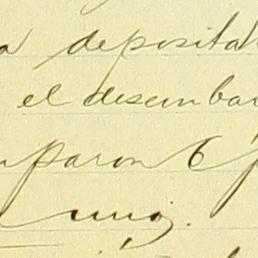 a deposita
el desembar
paron 6 p